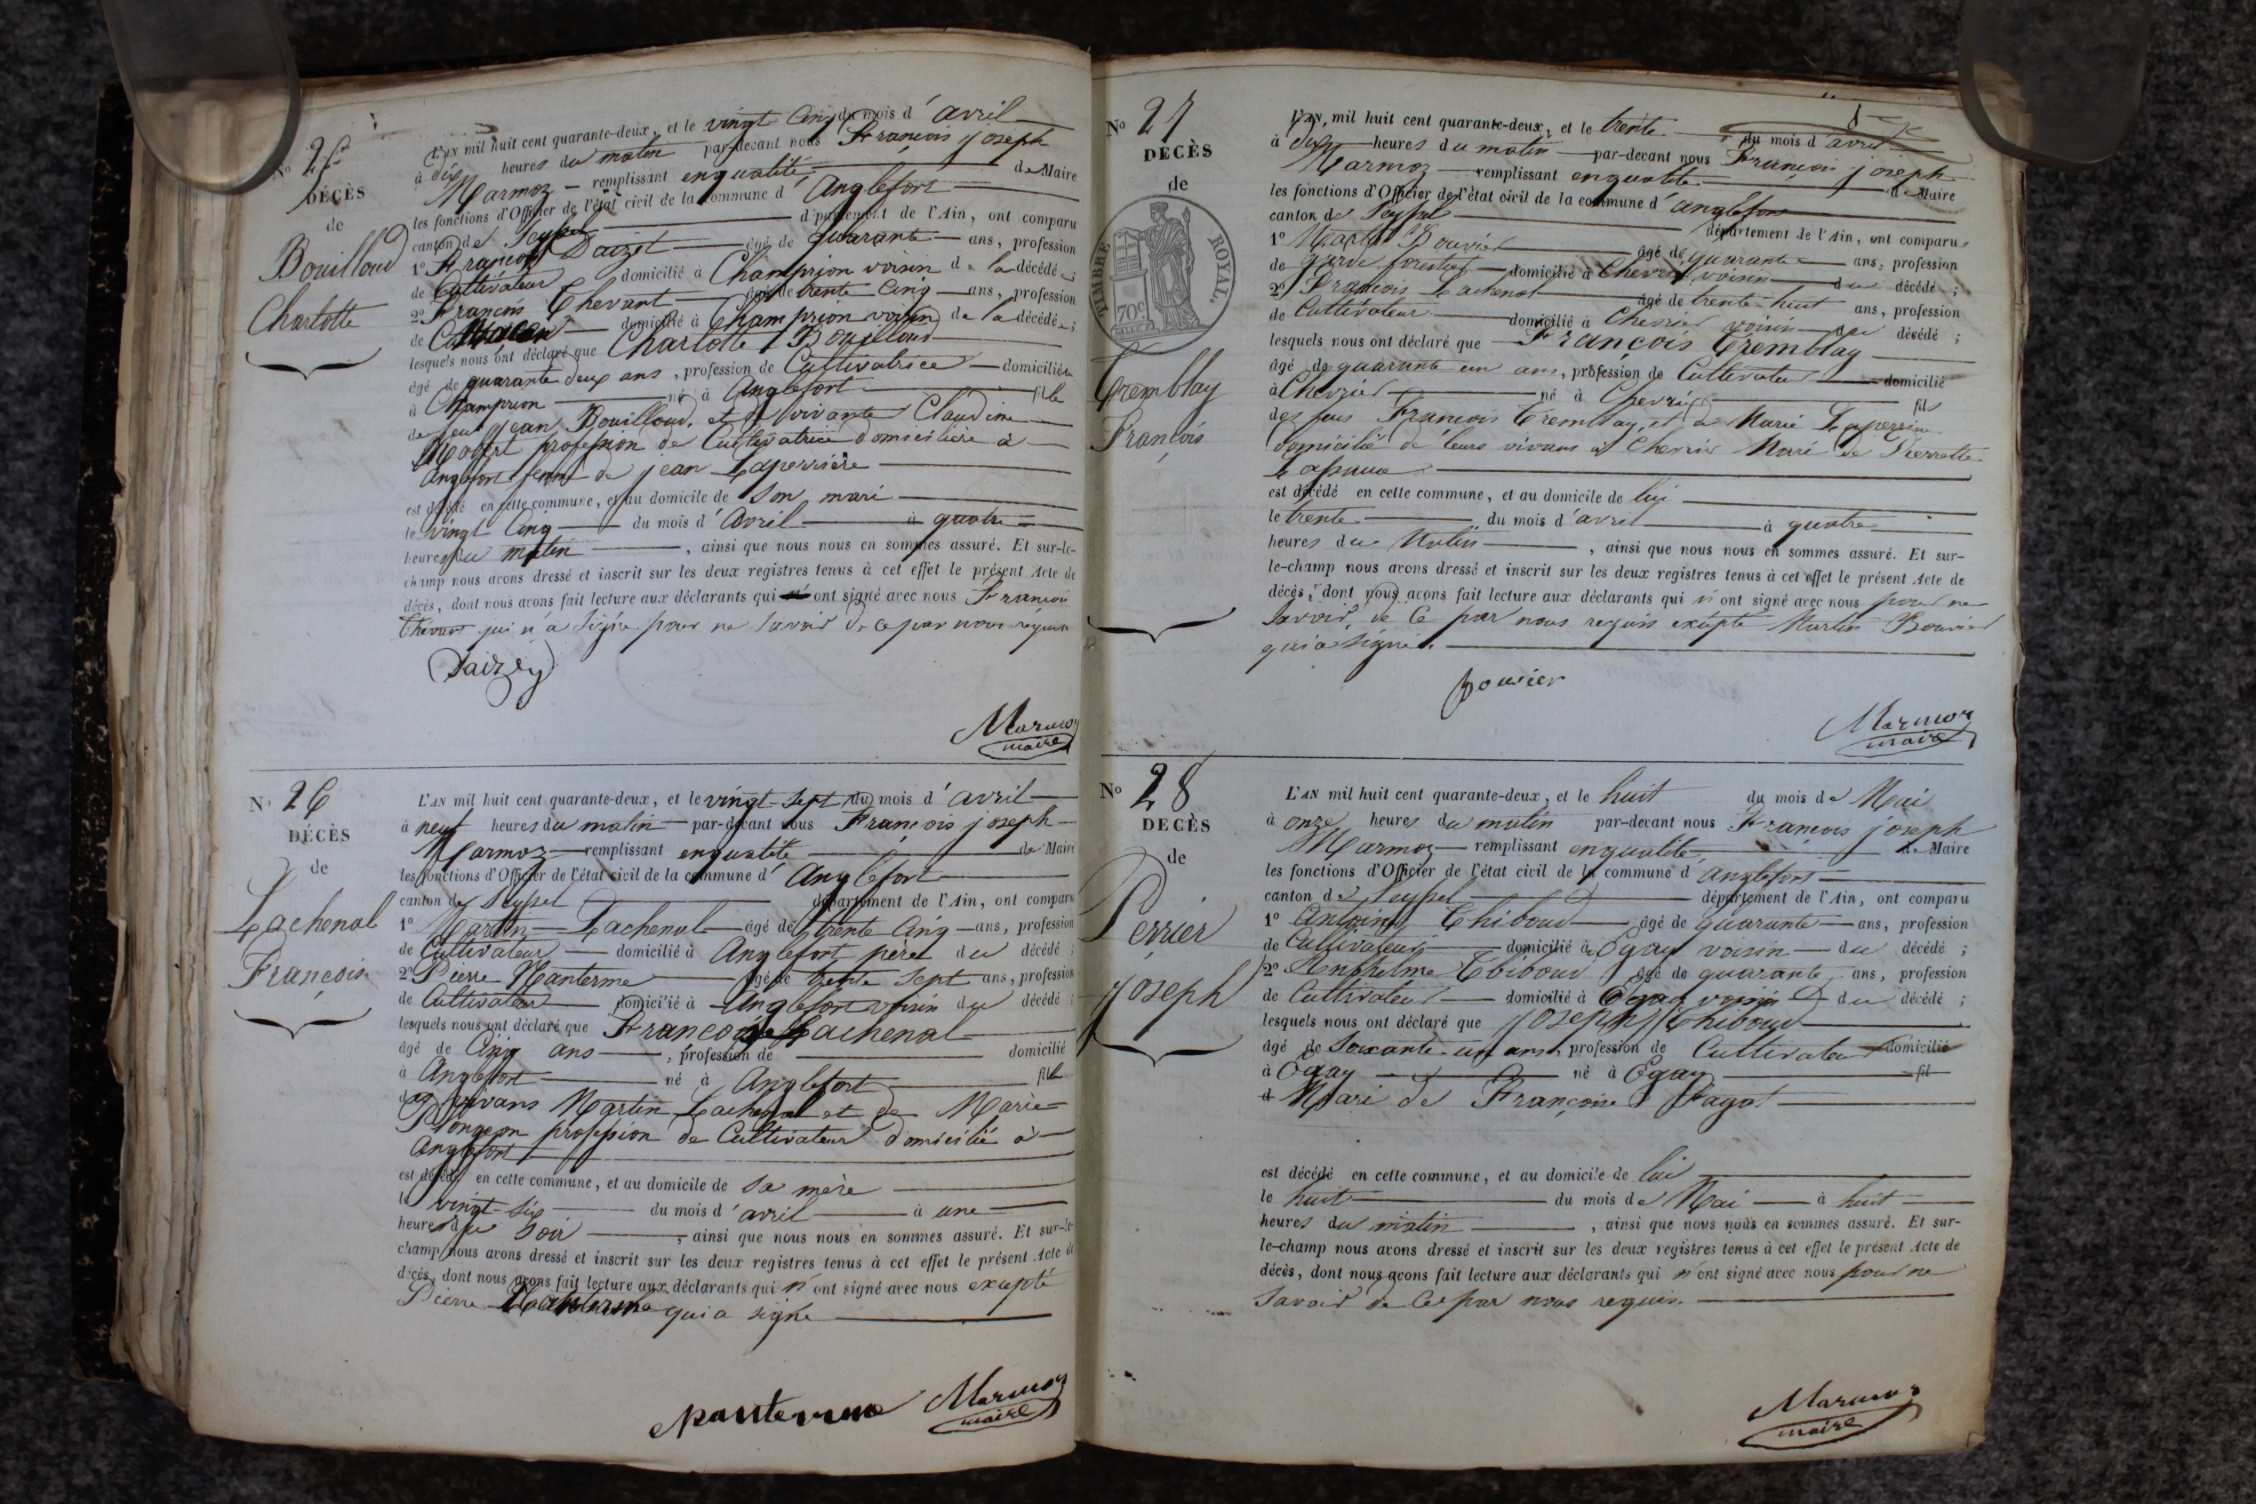 No 25
DÉCÈS
de
Bouilloud
Charlotte
L'AN mil huit cent quarante-deux, et le vingt Cinq du mois d'avril
à dix heures du matin par-devant nous François joseph
Marmoz remplissant en qualité de Maire
les fonctions d'Officier de l'état civil de la commune d'Anglefort
canton de Seyssel département de l'Ain, ont comparu
1º François Daizet âgé de quarante ans, profession
de Cultivateur domicilié à Champrion voisin de la décédée;
2º François Chevant âgé de trente Cinq ans, profession
de domicilié à Champrion voisin de la décédée;
lesquels nous ont déclaré que Charlotte Bouilloud
âgé de quarante deux ans, profession de Cultivatrice domiciliée
à Champrion né à Anglefort fille
de feu jean Bouilloud, et de vivante Claudine
profession de Cultivatrice domiciliée à
Anglefort femme de jean Laperrière
est décédé en cette commune, et au domicile de son mari
le vingt Cinq du mois d'Avril à quatre
heures du matin, ainsi que nous nous en sommes assuré. Et sur-le-
champ nous avons dressé et inscrit sur les deux registres tenus à cet effet le présent Acte de
décès, dont nous avons fait lecture aux déclarants qui ont signé avec nous François
Chevant qui n'a Signé pour ne Savoir de ce par nous requis
Daizey
Marmoz
maire
No 26
DÉCÈS
de
Lachenal
François
L'AN mil huit cent quarante-deux, et le vingt-sept du mois d'avril
à neuf heures du matin par-devant nous François joseph
Marmoz remplissant en qualité de Maire
les fonctions d'Officier de l'état civil de la commune d'Anglefort
canton de Seyssel département de l'Ain, ont comparu
1º Martin Lachenal âgé de trente Cinq ans, profession
de Cultivateur domicilié à Anglefort père du décédé;
2º Pierre Manterme âgé de trente sept ans, profession
de Cultivateur domicilié à Anglefort voisin du décédé;
lesquels nous ont déclaré que François Lachenal
âgé de Cinq ans, profession de domicilié
à Anglefort né à Anglefort fils
des vivans Martin Lachenal et de Marie
Plongeon profession de Cultivateur domicilié à
Anglefort
est décédé en cette commune, et au domicile de Sa mère
le vingt-six du mois d'avril à une
heures du Soir, ainsi que nous nous en sommes assuré. Et sur-le-
champ nous avons dressé et inscrit sur les deux registres tenus à cet effet le présent Acte de
décès, dont nous avons fait lecture aux déclarants qui n'ont signé avec nous excepté
Pierre Manterme qui a signé
Manterme
Marmoz
maire
No 27
DÉCÈS
de
TIMBRE ROYAL
70c
Tremblay
François
L'AN mil huit cent quarante-deux, et le trente du mois d'avril
à dix heures du matin par-devant nous François joseph
Marmoz remplissant en qualité de Maire
les fonctions d'Officier de l'état civil de la commune d'anglefort
canton de Seyssel département de l'Ain, ont comparu
1º Martin Bouvier âgé de quarante ans, profession
de garde forestier domicilié à Chevrier voisin du décédé;
2º François Lachenal âgé de trente-huit ans, profession
de Cultivateur domicilié à Chevrier voisin du décédé;
lesquels nous ont déclaré que François Tremblay
âgé de quarante un ans, profession de Cultivateur domicilié
à Chevrier né à Chevrier fils
des feus François Tremblay, et de Marie
domicilié de leurs vivans à Chevrier Mari de Pierrette
est décédé en cette commune, et au domicile de lui
le trente du mois d'avril à quatre
heures du Matin, ainsi que nous nous en sommes assuré. Et sur-
le-champ nous avons dressé et inscrit sur les deux registres tenus à cet effet le présent Acte de
décès, dont nous avons fait lecture aux déclarants qui n'ont signé avec nous pour ne
Savoir, de Ce par nous requis excepté Martin Bouvier
qui a signé.
Bouvier
Marmoz
maire
No 28
DÉCÈS
de
Perrier
joseph
L'AN mil huit cent quarante-deux, et le huit du mois de Mai
à onze heures du matin par-devant nous François joseph
Marmoz remplissant en qualité de Maire
les fonctions d'Officier de l'état civil de la commune d'anglefort
canton de Seyssel département de l'Ain, ont comparu
1º Antoine Thiboud âgé de quarante ans, profession
de Cultivateur domicilié à Egay voisin du décédé;
2º Anthelme Thiboud âgé de quarante ans, profession
de Cultivateur domicilié à Egay voisin du décédé;
lesquels nous ont déclaré que joseph Thiboud
âgé de Soixante-un ans, profession de Cultivateur domicilié
à Egay né à Egay fil
d Mari de Françoise Fagot
est décédé en cette commune, et au domicile de lui
le huit du mois de Mai à huit
heures du matin, ainsi que nous nous en sommes assuré. Et sur-
le-champ nous avons dressé et inscrit sur les deux registres tenus à cet effet le présent Acte de
décès, dont nous avons fait lecture aux déclarants qui n'ont signé avec nous pour ne
Savoir de Ce par nous requis.
Marmoz
maire